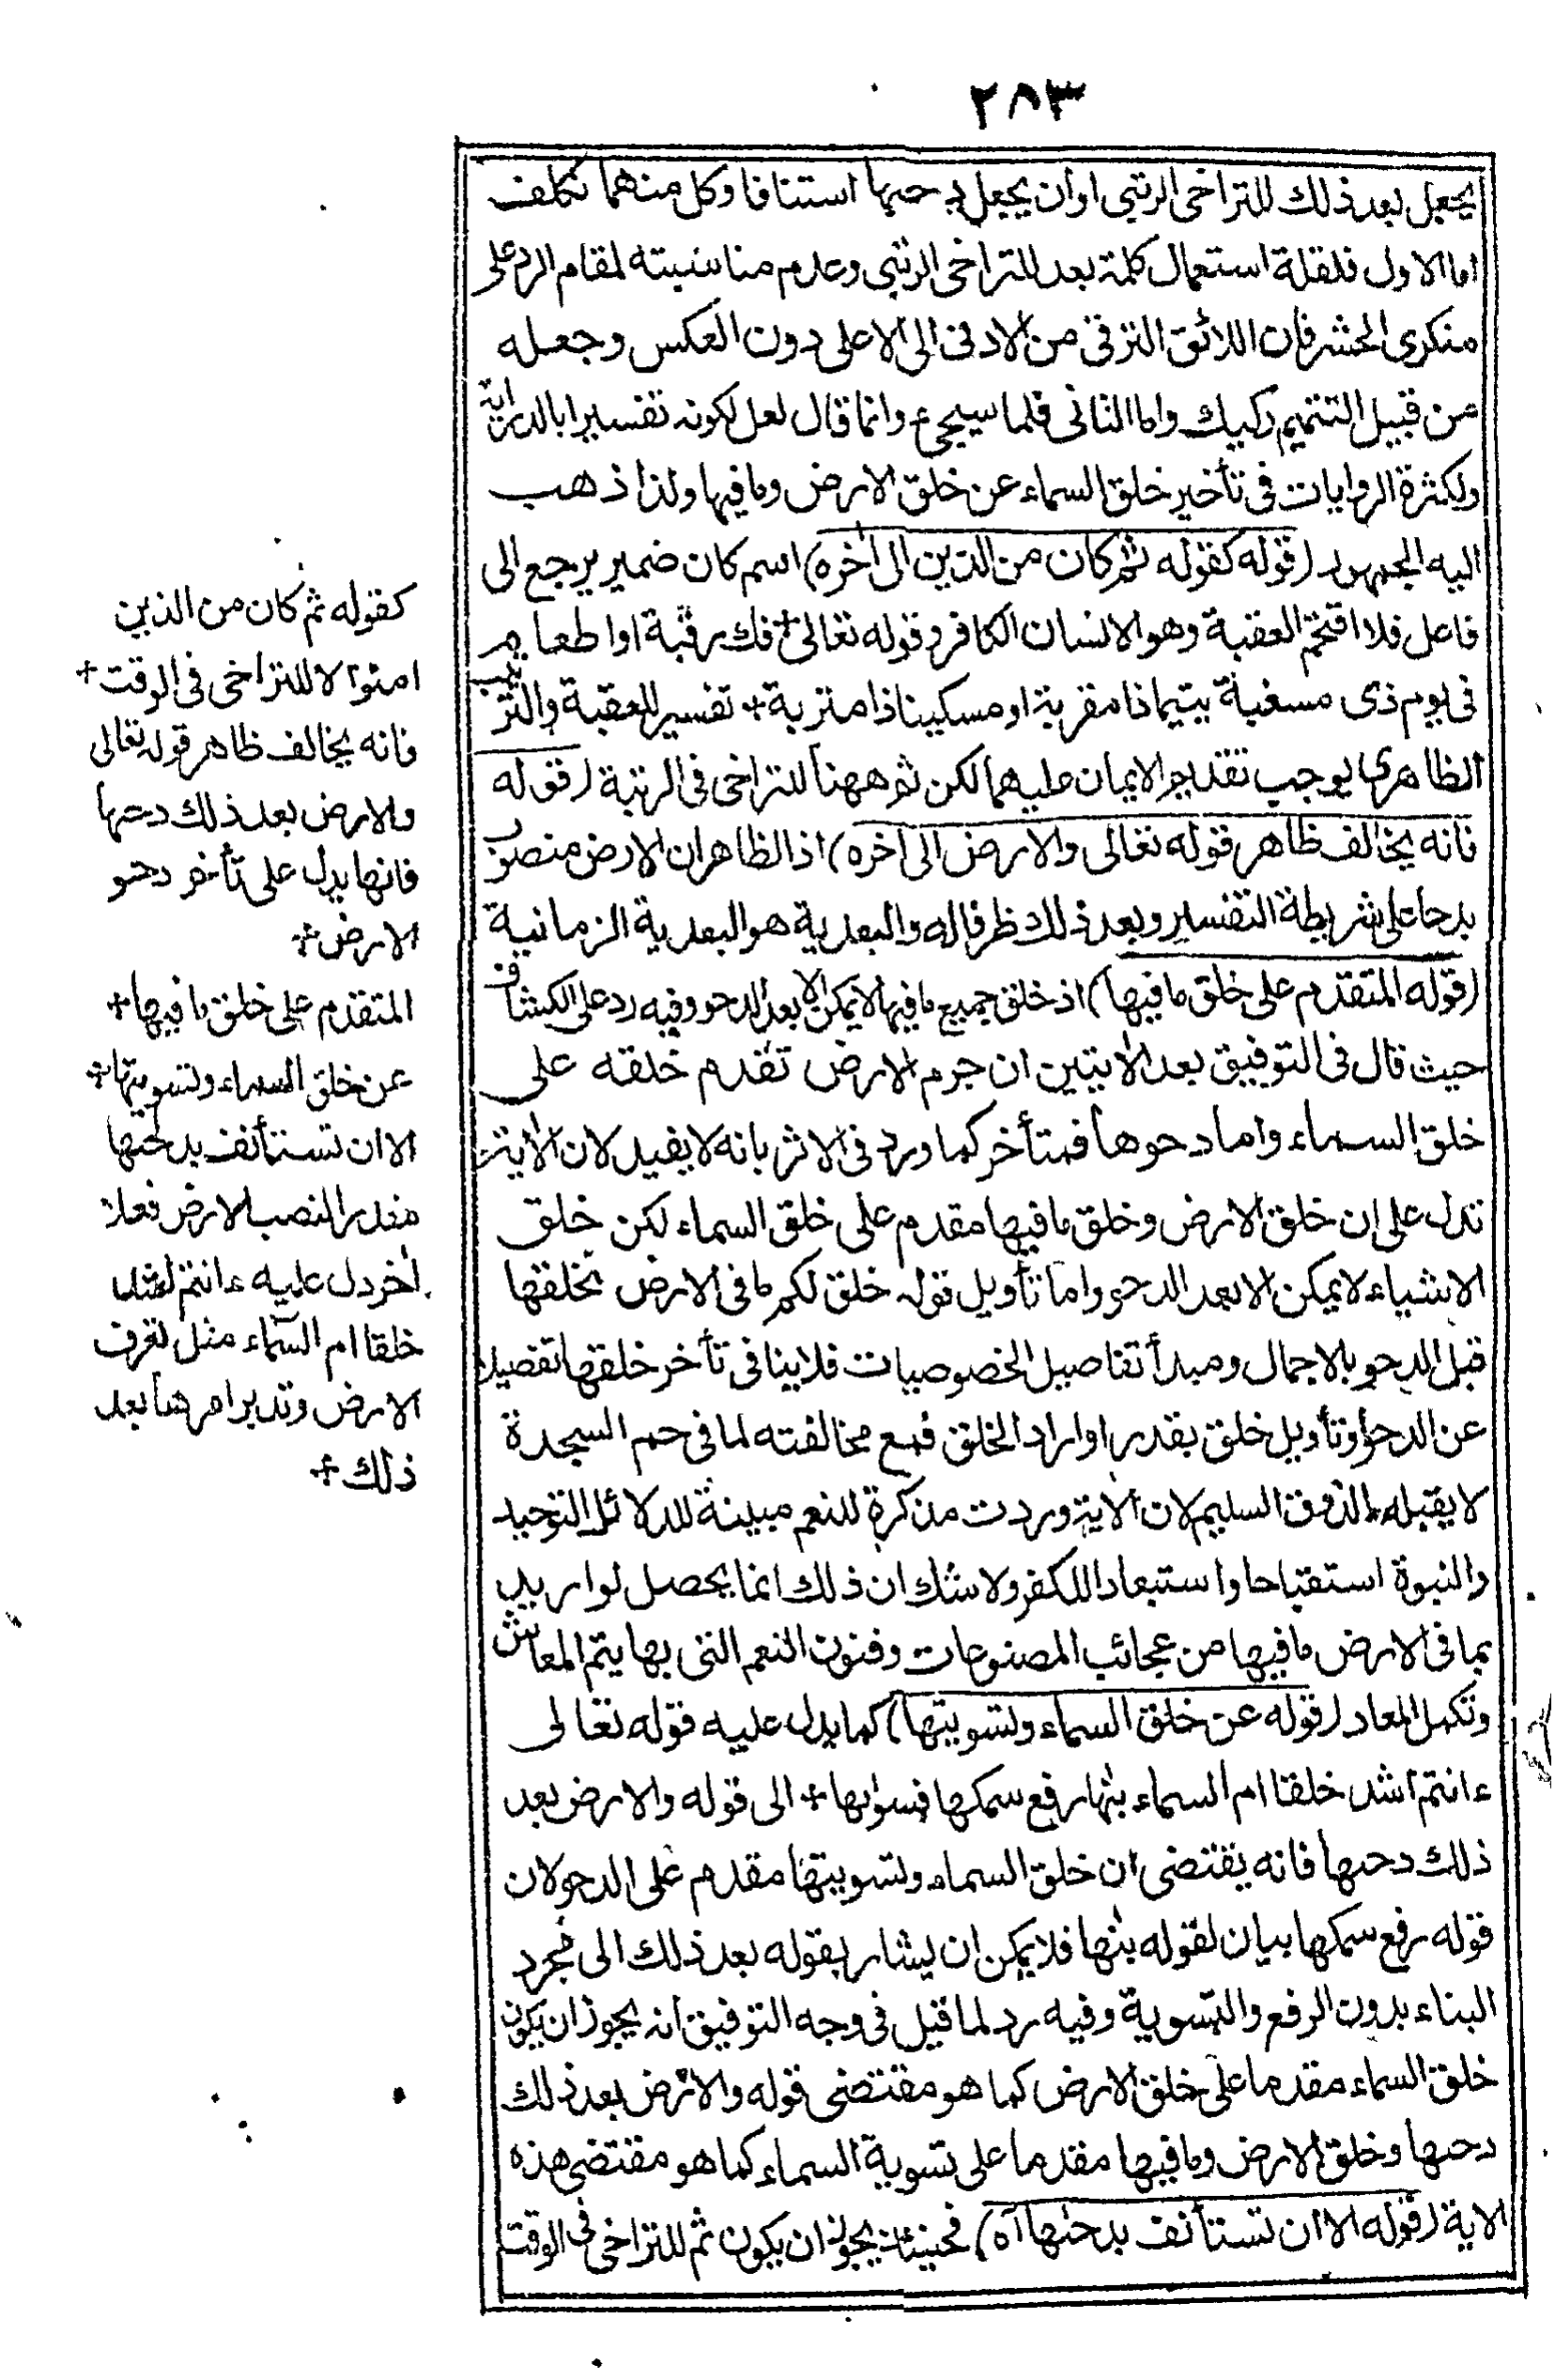 ٢٨٣
يجعل بعد ذلك للتراخى الرتبى او ان يجعل دحيها استئنافا وكل منهما تكلف
اما الاول فلقلة استعمال كلمة بعد للتراخى الرتبى وعدم مناسبته لمقام الرد على
منكرى الحشر فان اللائق الترقى من الادنى الى الاعلى دون العكس وجعله
من قبيل التتميم ركيك واما الثانى فلما سيجىء وانما قال لعل لكونه تفسيرا بالدراية
ولكثرة الروايات فى تأخير خلق السماء عن خلق الارض وما فيها ولذا ذهب
اليه الجمهور (قوله كقوله ثم كان من الذين الى اخره) اسم كان ضمير يرجع الى
فاعل فلا اقتحم العقبة وهو الانسان الكافر وقوله تعالى فك رقبة او اطعام
فى يوم ذى مسغبة يتيما ذا مقربة او مسكينا ذا متربة تفسير للعقبة والترتيب
الظاهرى يوجب تقديم الايمان عليهما لكن ثم ههنا للتراخى فى الرتبة (قوله
فانه يخالف ظاهر قوله تعالى والارض الى اخره) اذ الظاهر ان الارض منصوب
بدحا على شريطة التفسير وبعد ذلك ظرفا له والبعدية هو البعدية الزمانية
(قوله المتقدم على خلق ما فيها) اذ خلق جميع ما فيها لا يمكن الا بعد الدحو وفيه رد على الكشاف
حيث قال فى التوفيق بعد الايتين ان جرم الارض تقدم خلقه على
خلق السماء واما دحوها فمتأخر كما ورد فى الاثر بانه لا يفيد لان الاية
تدل على ان خلق الارض وخلق ما فيها مقدم على خلق السماء لكن خلق
الاشياء لا يمكن الا بعد الدحو واما تأويل قوله خلق لكم ما فى الارض بخلقها
قبل الدحو بالاجمال ومبدأ تفاصيل الخصوصيات فلا ينافى تأخر خلقها تفصيلا
عن الدحو او تأويل خلق بقدر او اراد الخلق فمع مخالفته لما فى حم السجدة
لا يقبله الذوق السليم لان الاية وردت مذكرة للنعم مبينة للدلائل التوحيد
والنبوة استقباحا واستبعادا للكفر ولا شك ان ذلك انما يحصل لو اريد
بما فى الارض ما فيها من عجائب المصنوعات وفنون النعم التى بها يتم المعاش
وتكمل المعاد (قوله عن خلق السماء وتسويتها) كما يدل عليه قوله تعالى
ءانتم اشد خلقا ام السماء بنها رفع سمكها فسوىها الى قوله والارض بعد
ذلك دحىها فانه يقتضى ان خلق السماء وتسويتها مقدم على الدحو لان
قوله رفع سمكها بيان لقوله بنها فلا يمكن ان يشار بقوله بعد ذلك الى مجرد
البناء بدون الرفع والتسوية وفيه رد لما قيل فى وجه التوفيق انه يجوز ان يكون
خلق السماء مقدما على خلق الارض كما هو مقتضى قوله والارض بعد ذلك
دحىها وخلق الارض وما فيها مقدما على تسوية السماء كما هو مقتضى هذه
الاية (قوله الا ان تستأنف بدحىها اه) فحينئذ يجوز ان يكون ثم للتراخى فى الوقت
كقوله ثم كان من الذين
امنوا لا للتراخى فى الوقت
فانه يخالف ظاهر قوله تعالى
والارض بعد ذلك دحىها
فانها يدل على تأخر دحو
الارض
المتقدم على خلق ما فيها
عن خلق السماء وتسويتها
الا ان تستأنف بدحىها
مقدرا لنصب الارض فعلا
اخر دل عليه ءانتم اشد
خلقا ام السماء مثل تعرف
الارض وتدبر امرها بعد
ذلك